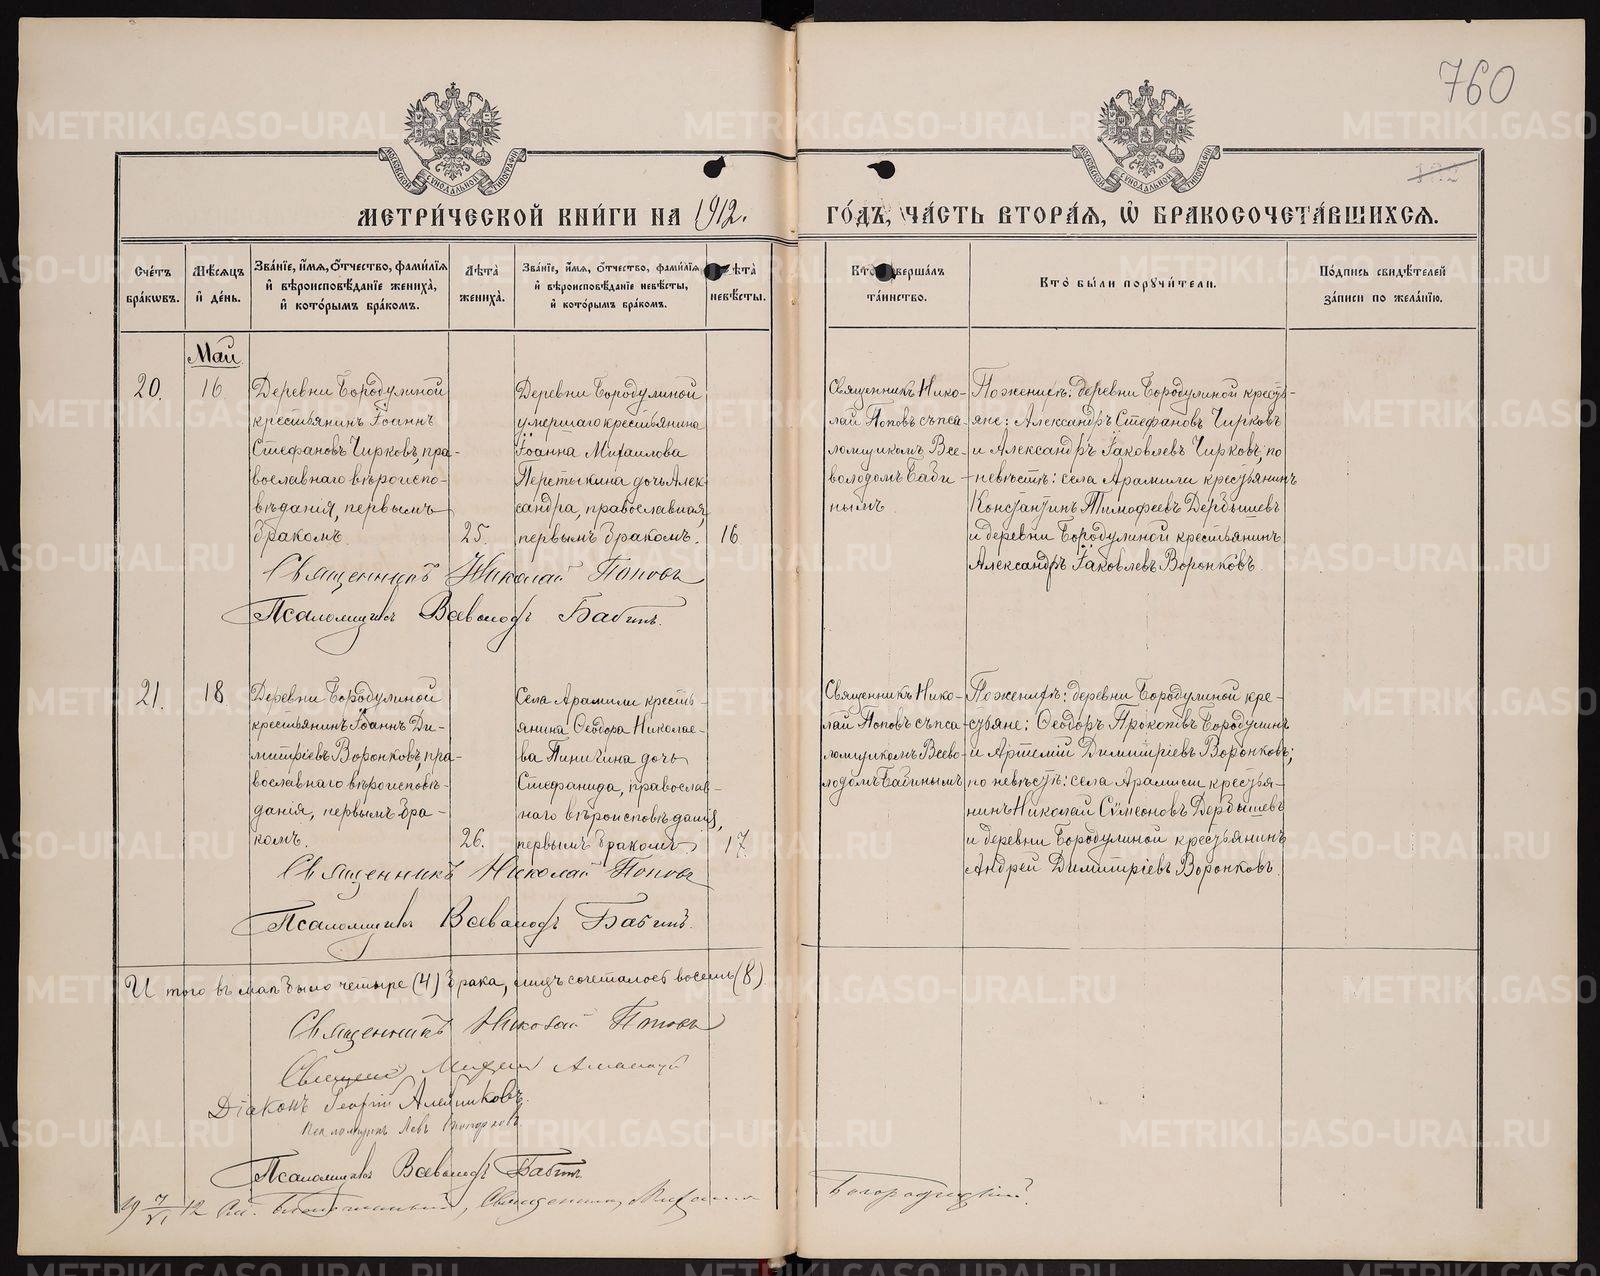 760
МЕТРИ́ЧЕСКОЙ КНИ́ГИ НА 1912.
ГО́ДЪ, ЧА́СТЬ ВТОРА́Я, Ѽ БРАКОСОЧЕТА́ВШИХСЯ.
Сче́тъ бра́кѡвъ.
Мѣ́сяцъ и҆ де́нь.
Зва́нїе, и҆́мя, ѻ҆́тчество, фами́лїя и҆ вѣроисповѣ́данїе жениха̀, и҆ кото́рымъ бра́комъ.
Лѣ́та̀ жениха̀.
Зва́нїе, и҆́мя, ѻ҆́тчество, фами́лїя и҆ вѣроисповѣ́данїе невѣ́сты, и҆ кото́рымъ бра́комъ.
Лѣ́та̀ невѣ́сты.
Кто̀ соверша́лъ та́инство.
Кто̀ бы́ли порꙋчи́тели.
По́дпись свидѣ́телей за́писи по жела́нїю.
Май
20.
16
Деревни Бородулиной
крестьянинъ Іоаннъ
Стефановъ Чирковъ, пра-
вославнаго вѣроиспо-
вѣданія, первымъ
бракомъ.
25.
Деревни Бородулиной
умершаго крестьянина
Іоанна Михаилова
Перетыкина дочь Алек
сандра, православная,
первымъ бракомъ.
16
Священникъ Нико-
лай Поповъ съ пса-
ломщикомъ Все-
володомъ Баби
нымъ
По женихѣ: деревни Бородулиной кресть-
яне: Александръ Стефановъ Чирковъ
и Александръ Іаковлевъ Чирковъ; по
невѣстѣ: села Арамили крестьянинъ
Константинъ Тимофеевъ Дербышевъ
и деревни Бородулиной крестьянинъ
Александръ Іаковлевъ Воронковъ.
Священникъ Николай Поповъ
Псаломщикъ Всеволодъ Бабинъ.
21.
18
Деревни Бородулиной
крестьянинъ Іоаннъ Ди-
митріевъ Воронковъ, пра-
вославнаго вѣроисповѣ-
данія, первымъ бра-
комъ.
26.
Села Арамили кресть-
янина Ѳеодора Николае-
ва Пинигина дочь
Стефанида, православ-
наго вѣроисповѣданія,
первымъ бракомъ
17.
Священникъ Нико-
лай Поповъ съ пса
ломщикомъ Всево-
лодомъ Бабинымъ
По женихѣ: деревни Бородулиной кре-
стьяне: Ѳеодоръ Прокопіевъ Бородулинъ
и Артемій Димитріевъ Воронковъ;
по невѣстѣ: села Арамили крестья-
нинъ Николай Сѵмеоновъ Дербышевъ
и деревни Бородулиной крестьянинъ
Андрей Димитріевъ Воронковъ.
Священникъ Николай Поповъ
Псаломщикъ Всеволодъ Бабинъ.
Итого въ маѣ было четыре (4) брака, лицъ сочеталось восемь (8)
Священникъ Николай Поповъ
Діаконъ Георгій Алейниковъ.
Псаломщикъ Левъ
Псаломщикъ Всеволодъ Бабинъ.
19 7/VI 12 Бл. Священникъ Михаилъ
Богородицкій.
METRIKI.GASO-URAL.RU